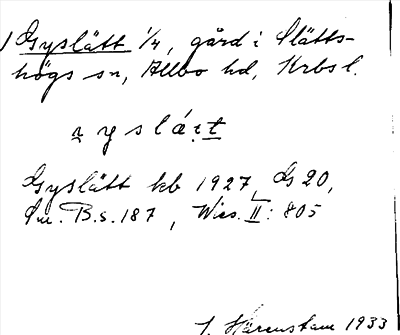 Gyslätt 1/4, gård i Slätts-
högs sn, Allbo hd, Krbs l.
Gyslätt kb 1927, GS 20,
B.s. 187, Wies. II: 805
J. Härenstam 1933